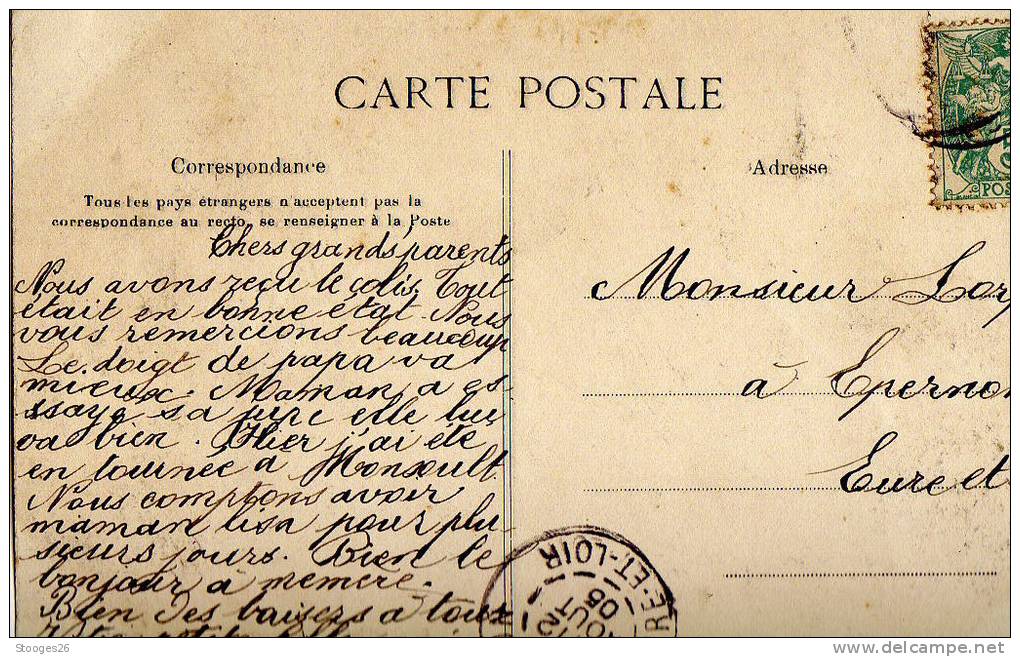 CARTE POSTALE
Correspondance
Tous les pays étrangers n'acceptent pas la
correspondance au recto, se renseigner à la Poste
Chers grands parents
Nous avons reçu le colis. Tout
était en bonne état. Nous
vous remercions beaucoup
Le doigt de papa va
mieux. Maman a es-
sayé sa jupe elle lui
va bien. Hier j'ai été
en tournée à Monsoult
Nous comptons avoir
maman lisa pour plu
sieurs jours. Bien le
bonjour à mémère.
Bien des baisers à tous
Adresse
Monsieur Lor
à Epernon
Eure et
POS
RE-ET-LOIR
12
OUT
05
Stooges26
delcampe.net